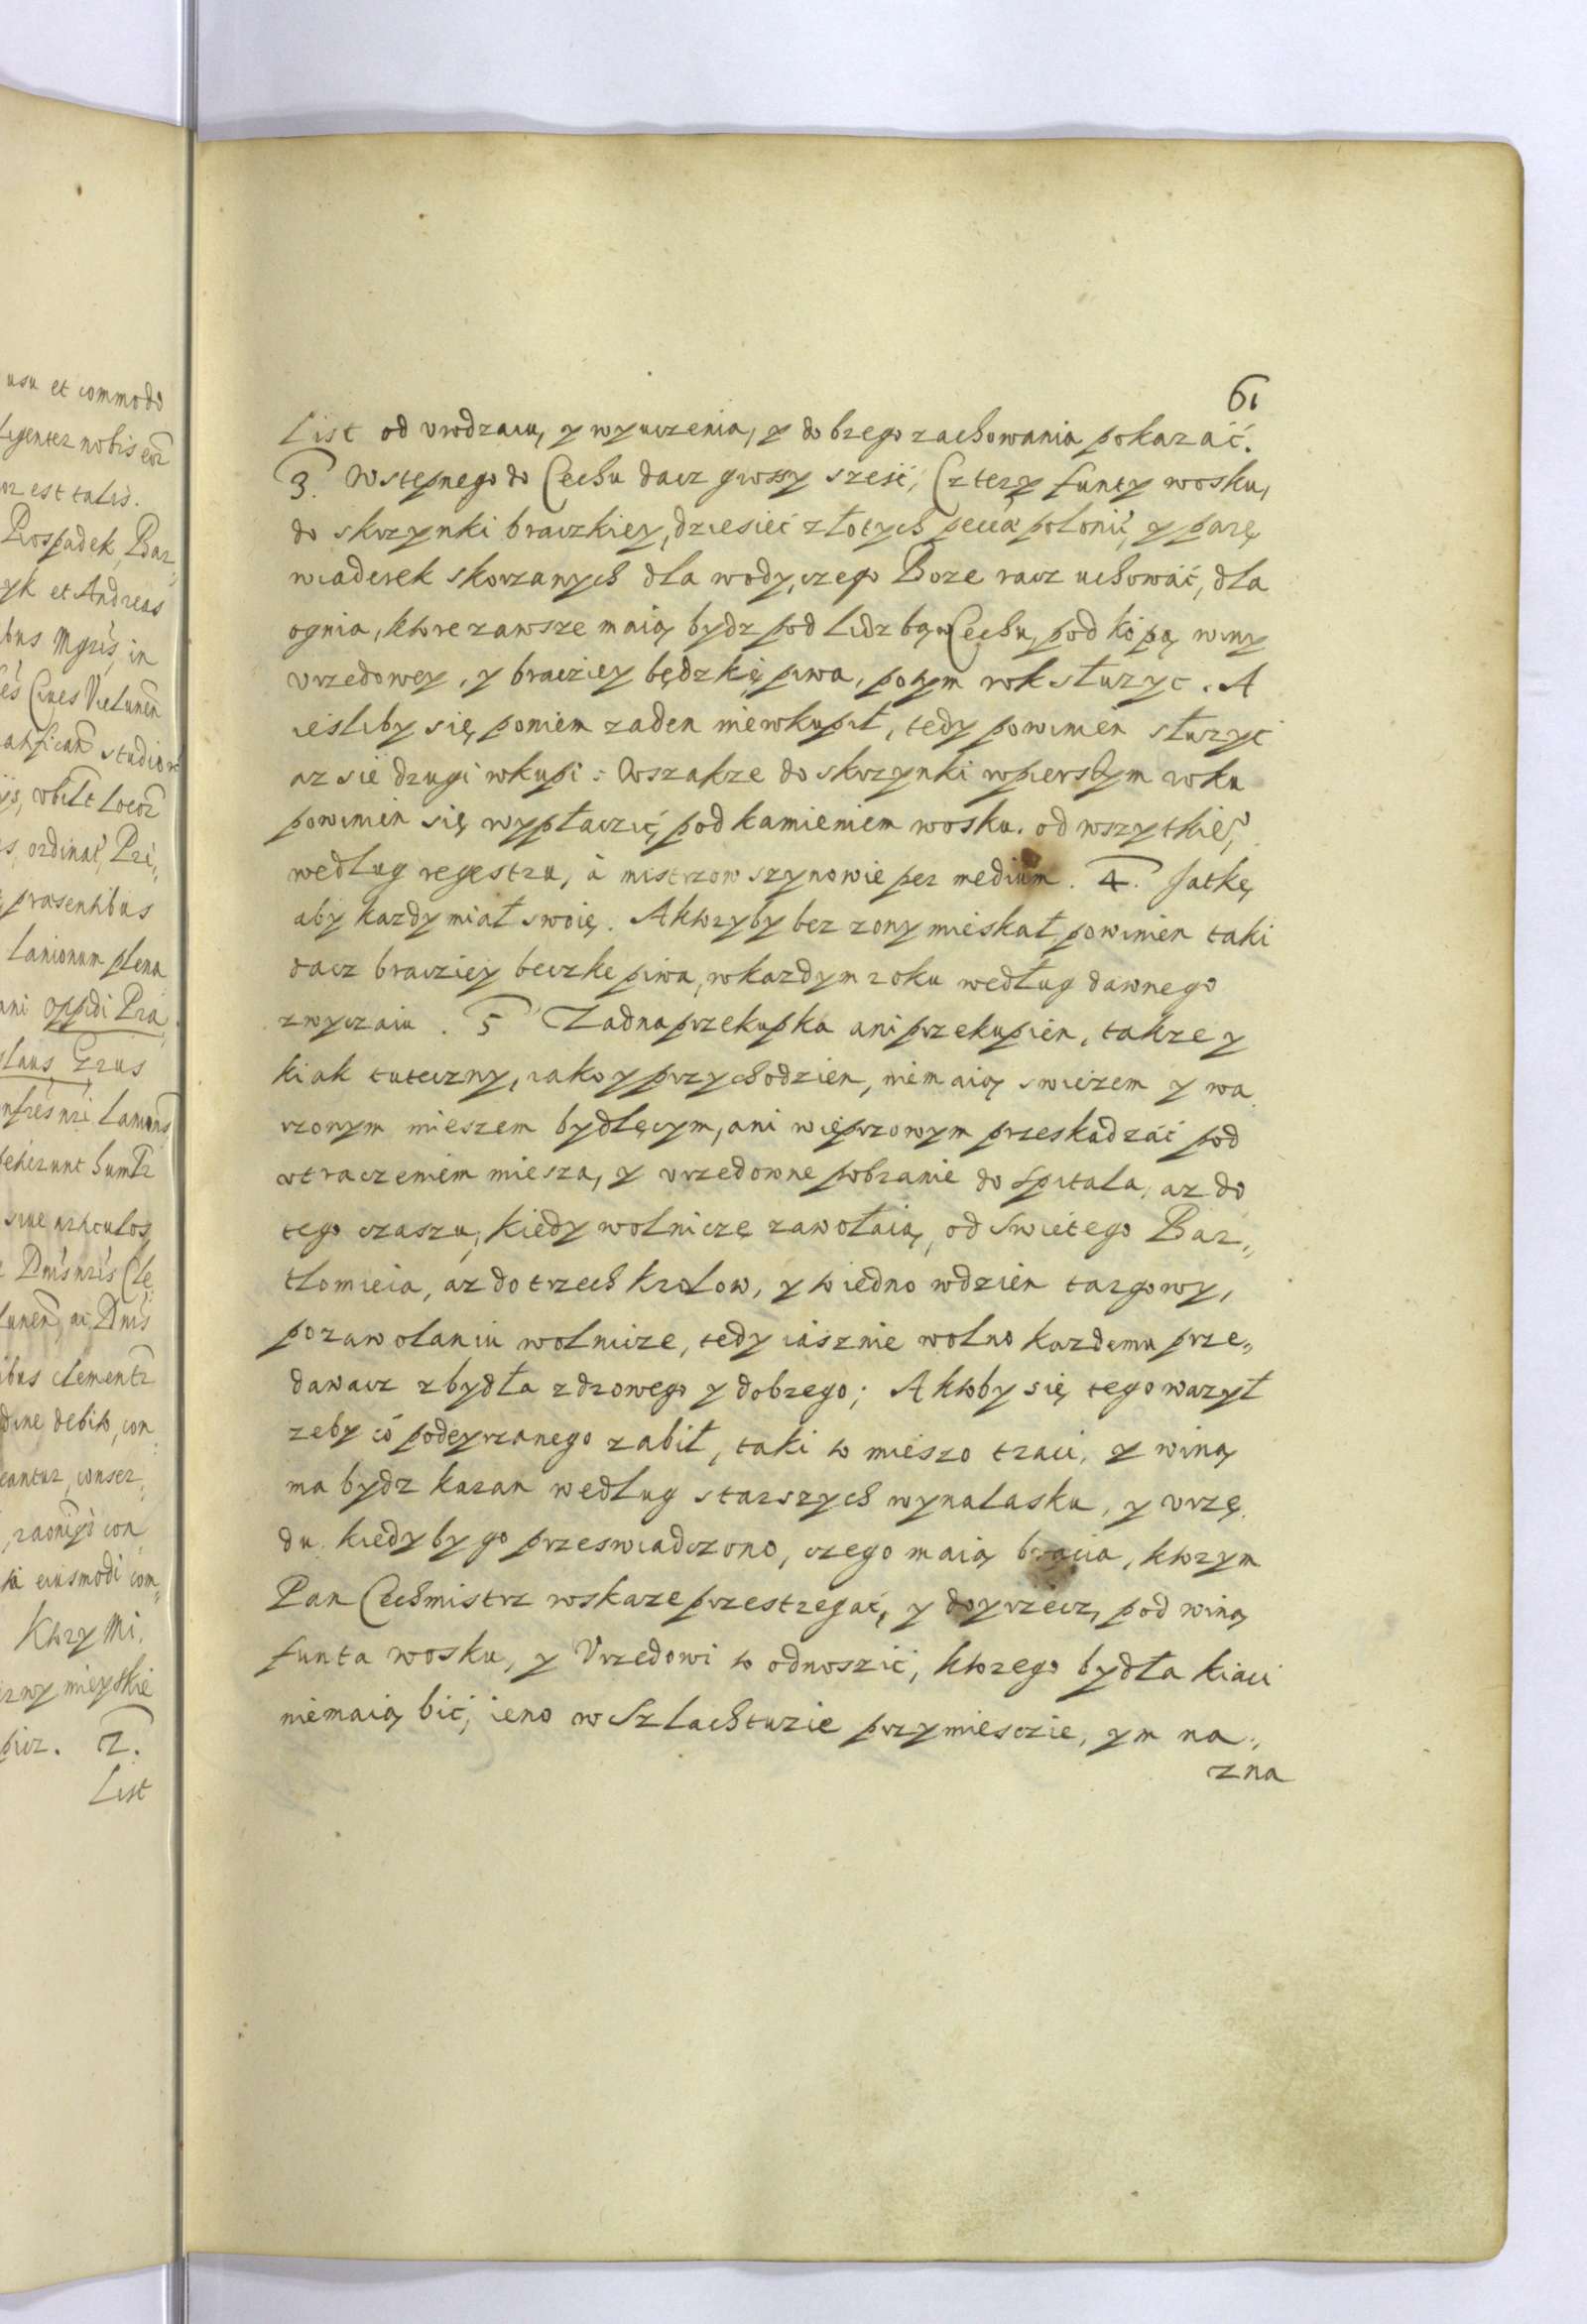 usu et commodo
ligenter nobis eor
or est talis.
Prospadek, Bar„
yk et Andreas
bus Mgris, in
Cives Vielunen
studior
ordinat, Pri„
praesentibus
Lanionum plena
ani oppidi Pra
slaus Grus
Lanion
sive articulos
ibus clement
dine debito, con
eantur, conser„
con
eiusmodi com„
Ktory Mi„
mieyskie
2.
List
61
List od vrodzaiu, y wyuczenia, y dobrego zachowania pokazać.
3. Wstepnego do Cechu dacz groszy sześć, Cztery funty wosku,
do skrzynki braczkiey, dziesieć złotych pecca poloni, y parę
wiaderek skorzanych dla wody, czego Boze racz uchować, dla
ognia, ktore zawsze maią bydz pod lidzbą w Cechu, pod kopą winy
vrzedowey, y braciey będzkę piwa, potym rok słuzyc. A
iesliby się poniem zaden niewkupił, tedy powinien słuzyc
az sie drugi wkupi: Wszakze do skrzynki wpierszym roku
powinien się wypłaczić, pod kamieniem wosku. od wszytkie
według regestru, à mistrzow szynowie per medium. 4. Jatkę
aby kazdy miał swoię. A ktoryby bez zony mieskał, powinien taki
dacz bracziey beczke piwa, wkazdym roku według dawnego
zwyczaiu. 5 Zadna przekupka ani przekupien, takze y
kiak tuteczny, iako y przychodzien, niemaią swiezem y wa
rzonym mieszem bydlęcym, ani wieprzowym przeskadzać pod
utraczeniem miesza, y vrzedowne pobranie do spitala, az do
tego czaszu, kiedy wolniczę zawołaią, od swietego Bar„
tlomieia, az do trzech Krolow, y to iedno wdzien targowy,
po zawolaniu wolnicze, tedy iasznie wolno kazdemu prze„
dawacz z bydła zdrowego y dobrego; A ktoby się tego wazył
zeby co podeyrzanego zabił, taki to mieszo traci, y winą
ma bydz karan według starszych wynalasku, y vrzę
du. kiedyby go przeswiadczono, czego maią bracia, ktorym
Pan Cechmistrz wskaze przestrzegać, y doyrzecz, pod winą
funta wosku, y Vrzedowi to odnoszić, ktorego bydła kiaci
niemaią bić, ieno w Szlachtuzie przy miesczie, ym na„
zna